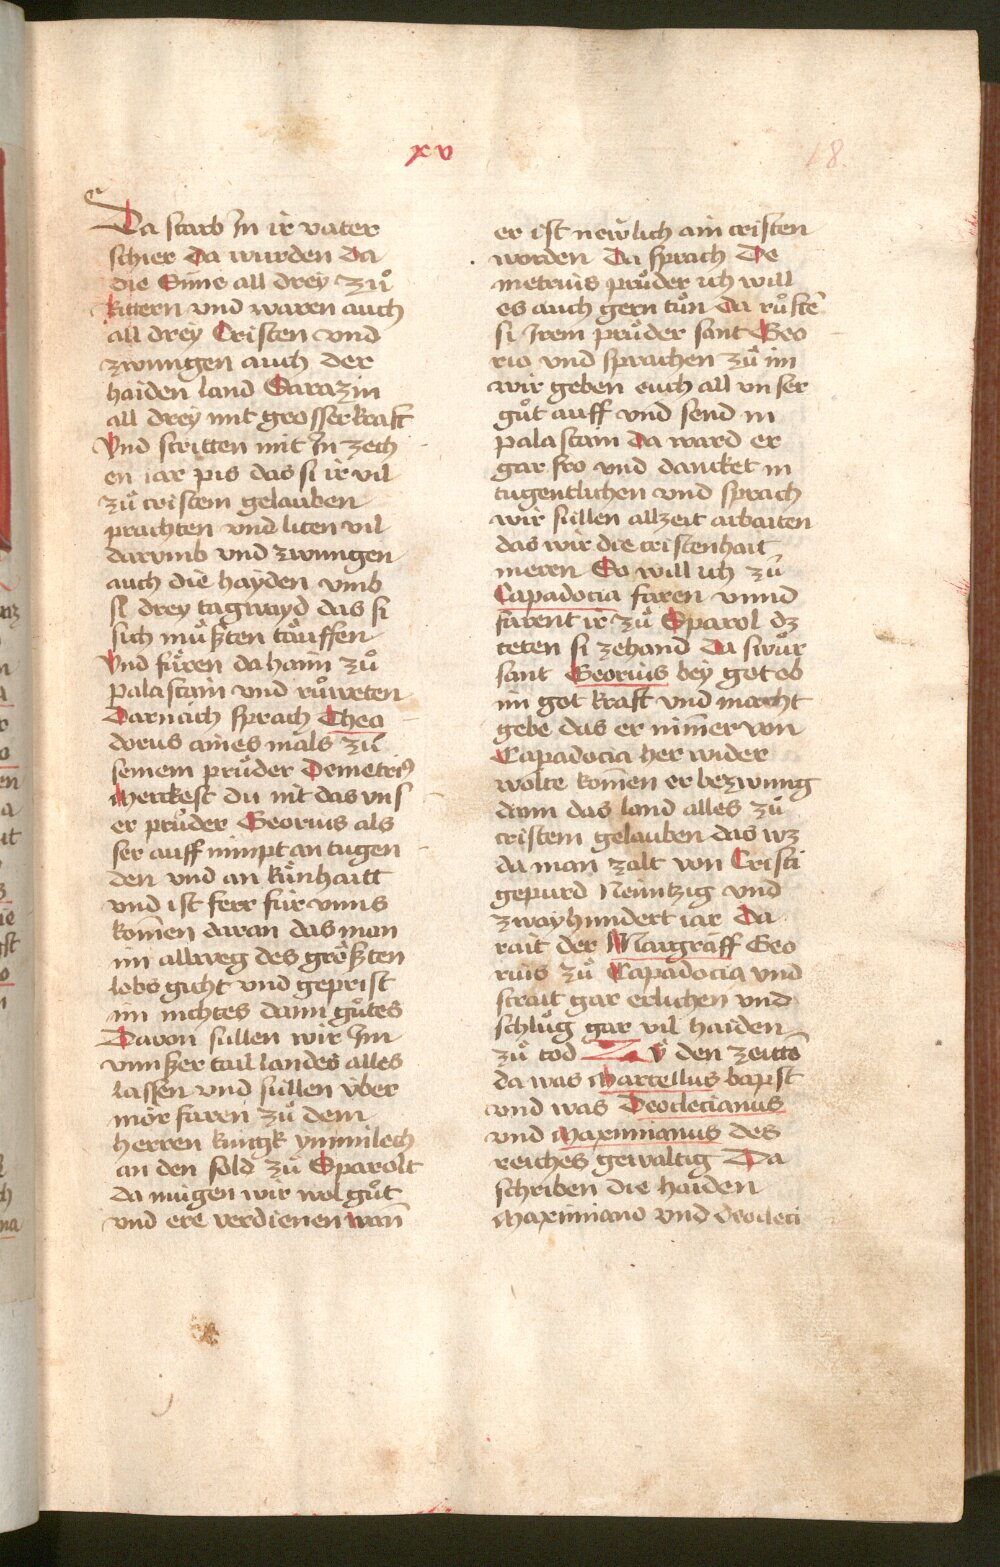 xv
18.
Da starb In ir vater
schier Da wurden Da
die Süne all drey zů
Rittern vnd waren auch
all drey Cristen vnd
zwungen auch der
haiden land Sarazin
all drey mit grosser kraft
Vnd stritten mit In zech
en iar pis das si ir vil
zů cristem gelauben
prachten vnd liten vil
darvmb vnd zwungen
auch die hayden vmb
si drey tagwayd das si
sich můsten tauffen
Vnd fůren da hann zů
palastain vnd růweten
Darnach sprach Theo
dorus aines mals zů
seinem průder Demetrius
Merckest du nit das vns
er průder Georius als
ser auff nimpt an tugen
den vnd an kůnhaitt
vnd ist ferr für vnns
kom̄en daran das man
im allweg des grösten
lobs gicht vnd geprist
im nichtes dann gůtes
Davon sullen wir Im
vnnser tail landes alles
lassen vnd sullen vber
mör faren zů dem
herren kungk ymmilech
an den sold zů Sparolt
da mugen wir wol gůt
vnd ere verdienen wan̄
er ist newlich ain cristen
worden Da sprach De
metrius průder ich will
es auch gern tůn da růfte
si Irem průder sant Geo
rio vnd sprachen zů im
wir geben euch all vnser
gůt auff vnd send in
palastain Da ward er
gar fro vnd dancket in
tugentlichen vnd sprach
wir sullen allzeit arbaiten
das wir die cristenhait
meren So will ich zů
Capadocia faren vnnd
farent ir zů Sparol dz
teten si zehand Da swůr
sant Georius bey got ob
im got kraft vnd macht
gebe das er nim̄er von
Capadocia her wider
wolte kom̄en er bezwung
dann das land alles zů
cristem gelauben das wz
da man zalt von Cristi
gepurd Neuntzig vnd
zwayhundert iar Da
rait der Margraff Geo
rius zů Capadocia vnd
strait gar erlichen vnd
schlůg gar vil haiden
zů tod Zů den zeitte͂
da was Marcellus bapst
vnd was Deoclecianus
vnd Maximianus des
reiches gewaltig Da
schriben die haiden
Maximiano vnd deocleci